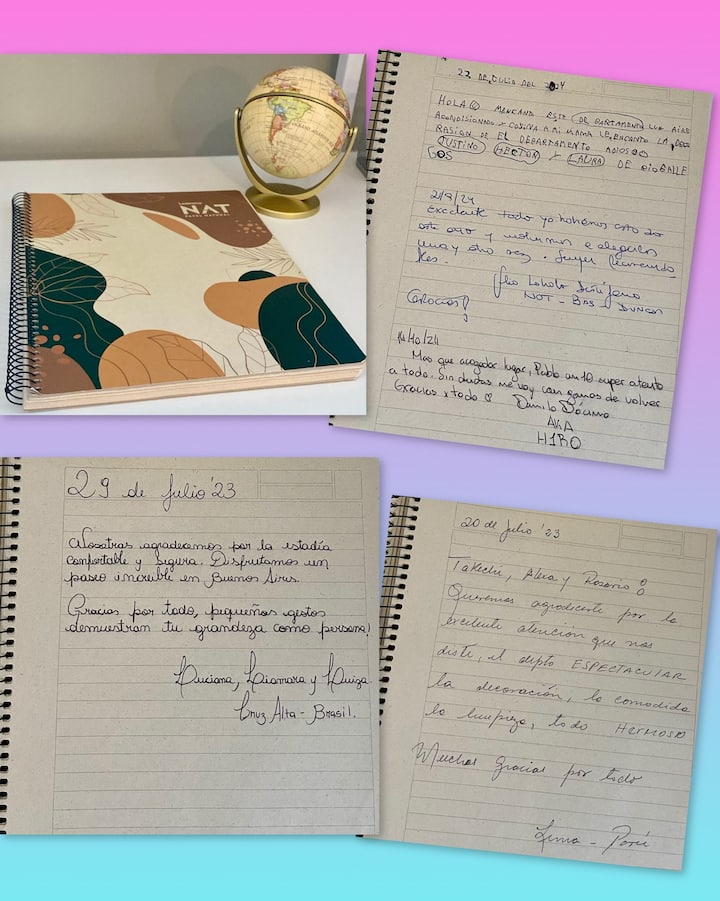 NAT
PAPEL NATURAL
22 DE JULIO DEL
HOLA MENCANO ESTE DEPARTAMENTO LUS AIRE
ACONDISIONADO Y COSINA A MI MAMA LE ENCANTO LA DECO
RASION DE EL DEPARTAMENTO ADIOS
JUSTINO HECTOR Y LAURA DE RIO GALLE
GOS
21/8/24
Excelente todo ya
este año y volvimos a elegirlos
una y otra vez. Super
NOT - BAS -
Gracias!
14/10/24
Mas que acogedor lugar, Pablo un 10 super atento
a todo. Sin dudas me voy con ganas de volver
Gracias x todo Danilo
AKA
H1RO
29 de Julio '23
Nosotras agradecemos por la estadía
confortable y segura. Disfrutamos un
paseo increíble en Buenos Aires.
Gracias por todo, pequeños gestos
demuestran tu grandeza como persona!
Luciana, Laiamara y Luiza
Cruz Alta - Brasil.
20 de Julio '23
Takechi, Alexa y Rosario
Queremos agradecerte por la
excelente atención que nos
diste, el depto ESPECTACULAR
la decoración, lo comodida
la limpieza, todo HERMOSO
Muchas Gracias por todo
Lima - Perú